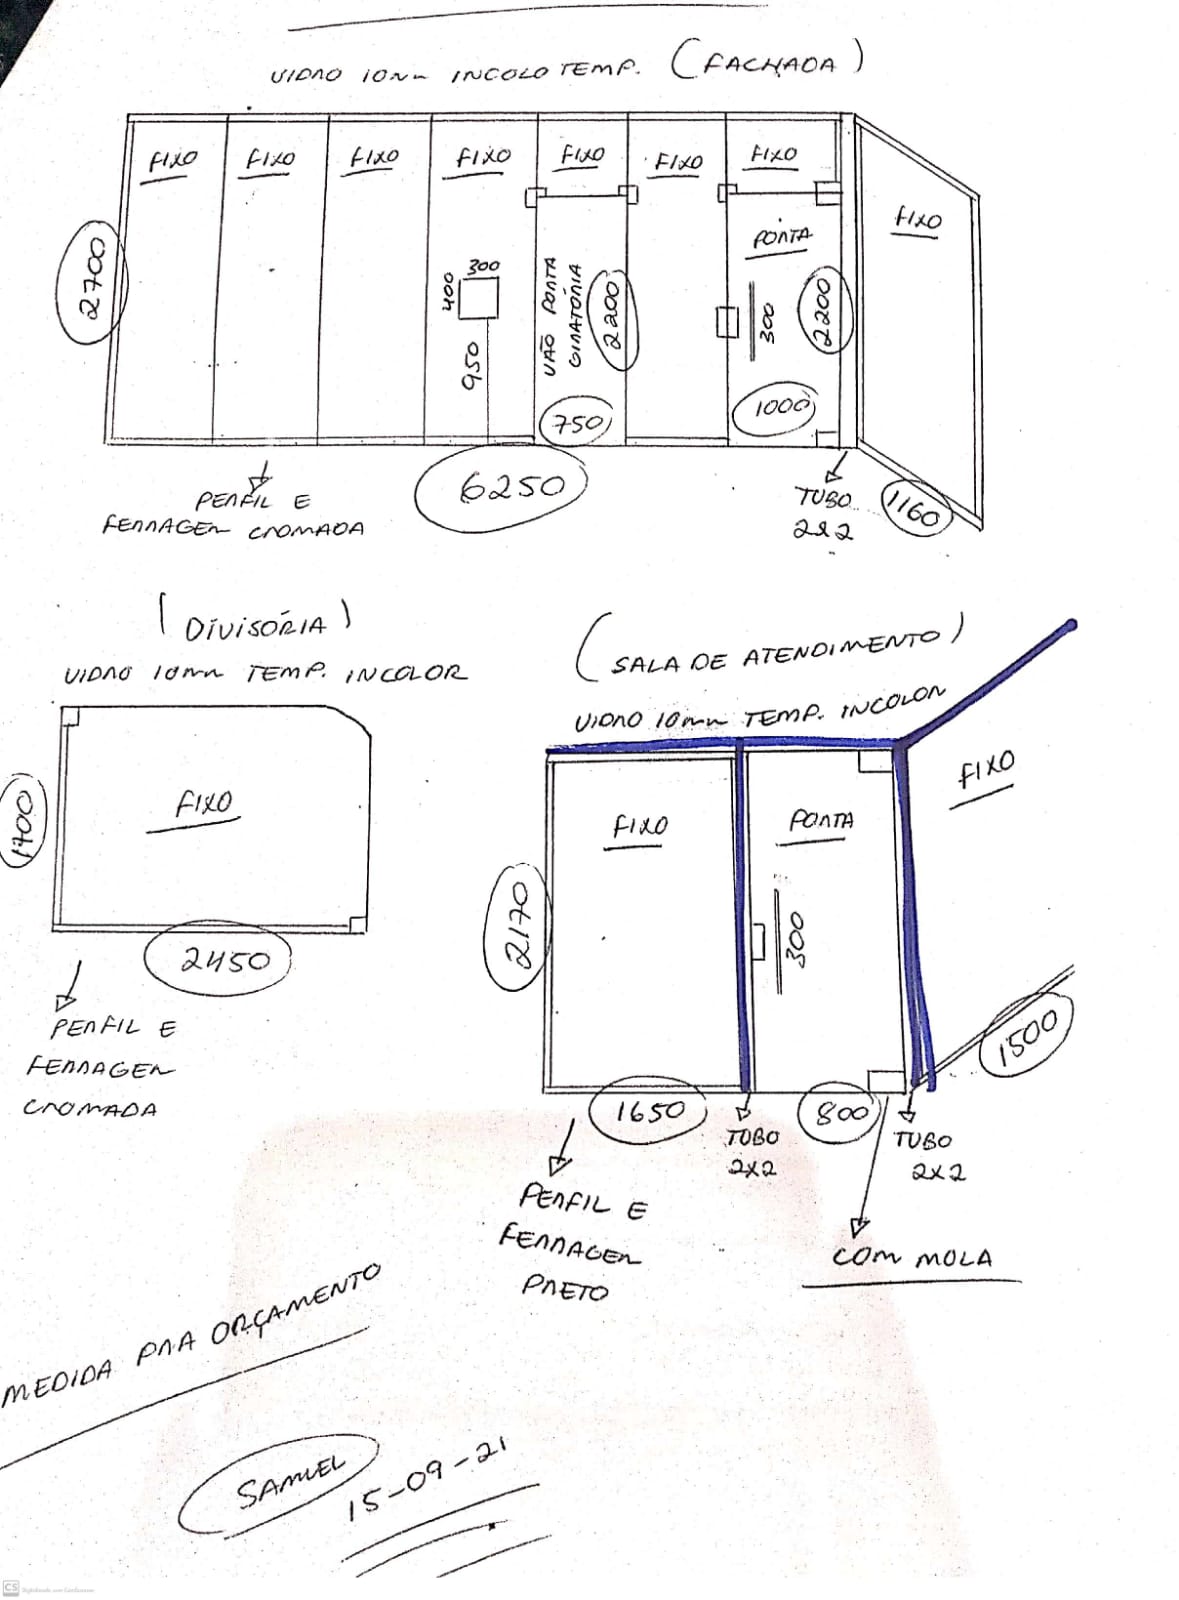 VIDRO 10mm INCOLO TEMP. (FACHADA)
FIXO FIXO FIXO FIXO FIXO FIXO FIXO
FIXO
PORTA
2700
300
400
950
VÃO PORTA
GIRATÓRIA
2200
300
2200
750
1000
6250
PERFIL E
FERRAGEM CROMADA
TUBO
2x2
1160
(DIVISÓRIA)
VIDRO 10mm TEMP. INCOLOR
FIXO
1700
2450
PERFIL E
FERRAGEM
CROMADA
(SALA DE ATENDIMENTO)
VIDRO 10mm TEMP. INCOLOR
FIXO
FIXO
PORTA
2170
300
1500
1650
800
TUBO
2x2
TUBO
2x2
PERFIL E
FERRAGEM
PRETO
COM MOLA
MEDIDA PRA ORÇAMENTO
SAMUEL
15-09-21
CS